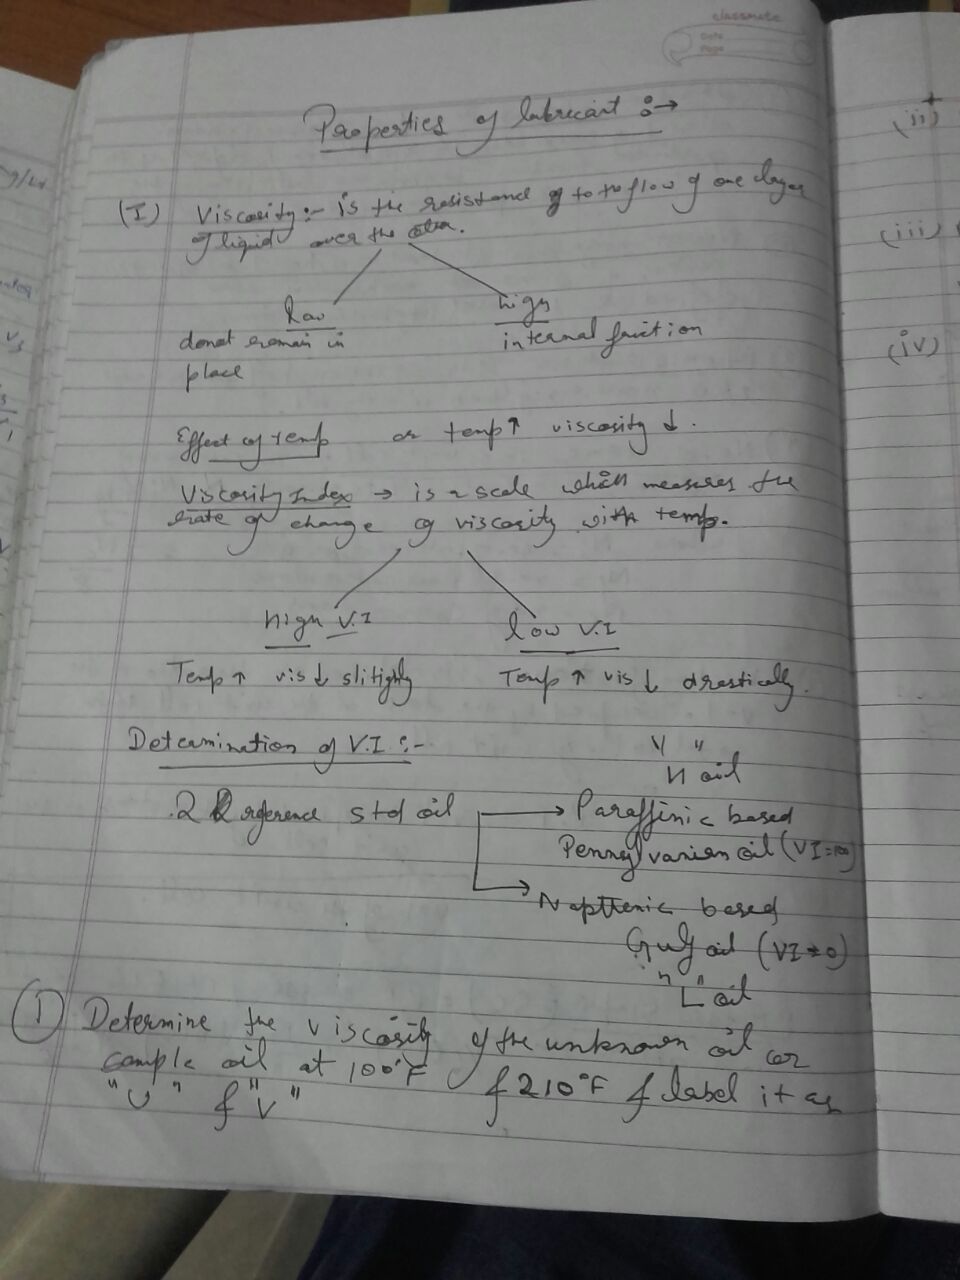 classmate
Date
Page
Properties of lubricant :→
(I) Viscosity :- is the resistance of to the flow of one layer
of liquid over the other.
low
high
donot remain in
place
internal friction
Effect of temp as temp↑ viscosity ↓.
Viscosity Index → is a scale which measures the
rate of change of viscosity with temp.
high V.I
low V.I
Temp ↑ vis ↓ slitighly
Temp ↑ vis ↓ drastically.
Determination of V.I :-
" "
H oil
2 reference std oil → Paraffinic based
Pennsylvanian oil (VI=100)
→ Napthenic based
Gulf oil (VI=0)
"L" oil
① Determine the viscosity of the unknown oil or
sample oil at 100°F & 210°F & label it as
"U" & "V"
(ii)
(iii)
(iv)